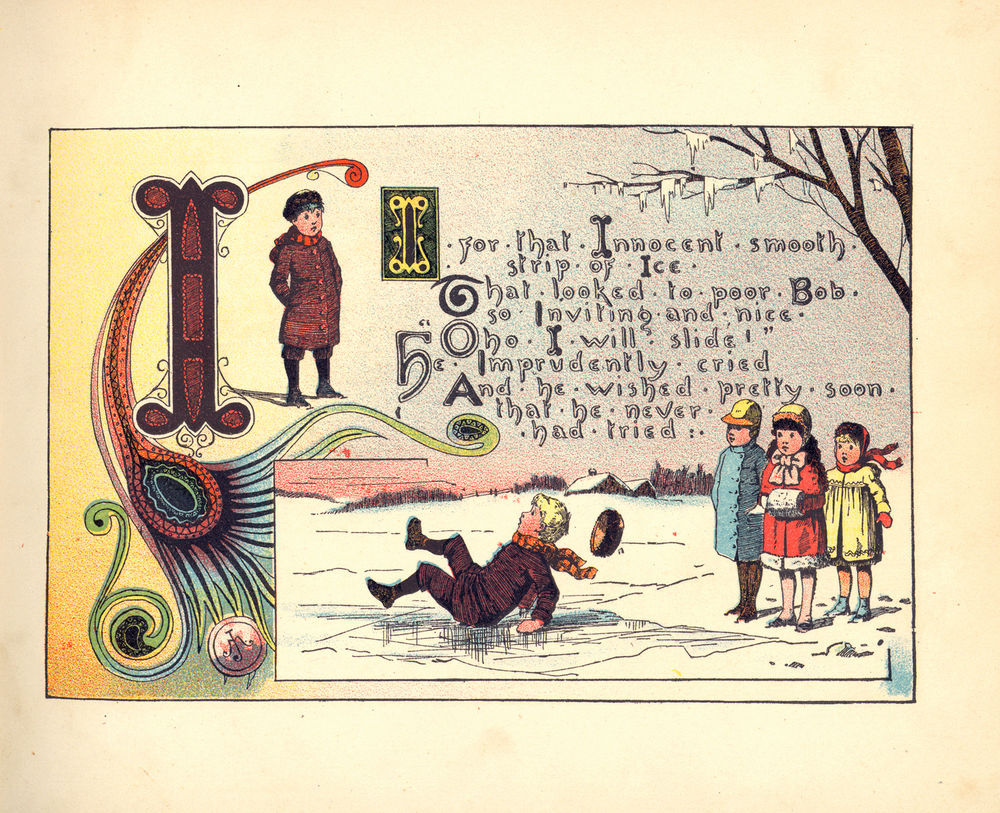 I
I · for · that · Innocent · smooth ·
strip · of · Ice ·
That · looked · to · poor · Bob ·
so · Inviting · and · nice ·
"Oho · I · will · slide!"
He · Imprudently · cried
And · he · wished · pretty · soon ·
that · he · never ·
had · tried :·